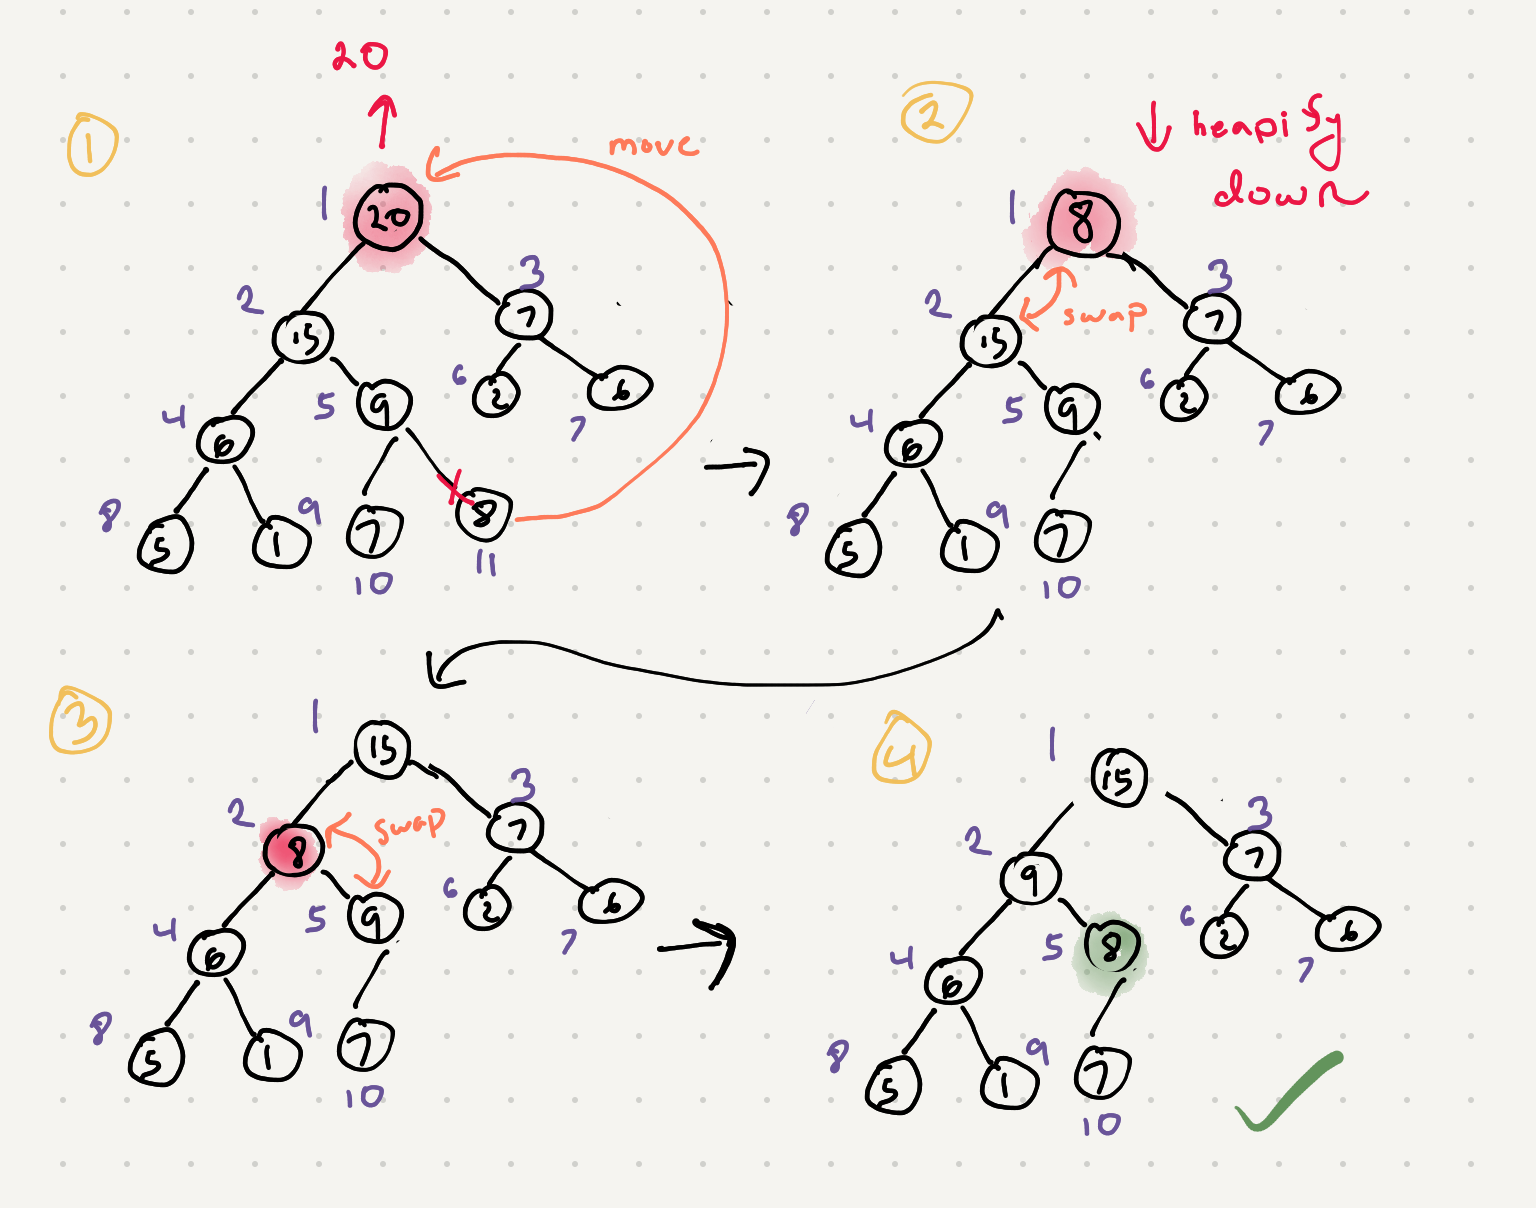 20
1
move
1
20
2
15
3
7
4
6
5
9
6
2
6
7
8
5
1
9
7
10
8
11
2
heapify
down
1
8
swap
2
15
3
7
4
6
5
9
6
2
6
7
8
5
1
9
7
10
3
1
15
2
8
swap
3
7
4
6
5
9
6
2
6
7
8
5
1
9
7
10
4
1
15
2
9
3
7
4
6
5
8
6
2
6
7
8
5
1
9
7
10